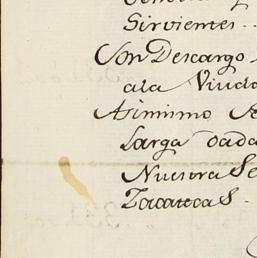 Sirvientes.
Son Descargo
ala Viuda
Asimismo
Larga dada
Nuestra Se
Zacatecas.